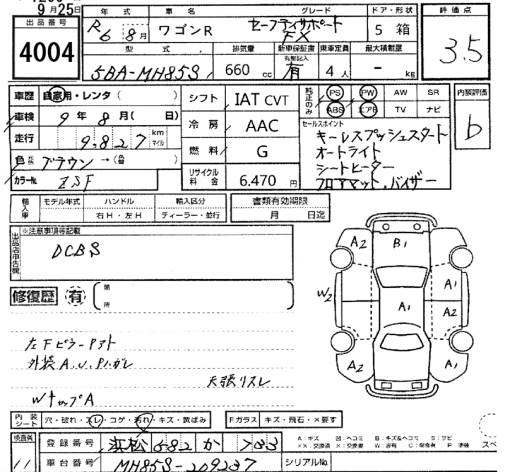 9月25日
出品番号 4004
年式 車名 グレード ドア・形状 評価点
R6 8月 ワゴンR セーフティサポート FX 5 箱 3.5
型式 排気量 新車保証書 乗車定員 最大積載量
5BA-MH85S 660cc 有 4人 - kg
車歴 自家用・レンタ( ) シフト IAT CVT 純正のみ PS PW AW SR 内装評価
ABS エアB TV ナビ b
車検 9年8月( 日) 冷房 AAC セールスポイント
走行 9,827 km マイル 燃料 G キーレスプッシュスタート
オートライト
色 ブラウン→( ) シートヒーター
カラーNo. ZSF リサイクル料金 6,470円 フロアマット,バイザー
輸入車 モデル年式 ハンドル 輸入区分 書類有効期限
右H・左H ディーラー・並行 月 日迄
※注意事項等記載
DCBS
修復歴 有 箇所
A2 B1 A2
W2 A1 A2
A2 A1 A2
左FピラーPアト
外装A.U.P.ハガレ
天張リスレ
WナップA
内装シート 穴・破れ・スレ・コゲ・汚れ・キズ・黄ばみ Fガラス キズ・飛石・×要す
登録番号 浜松 582 か 703
車台番号 MH85S-209237 シリアルNo.